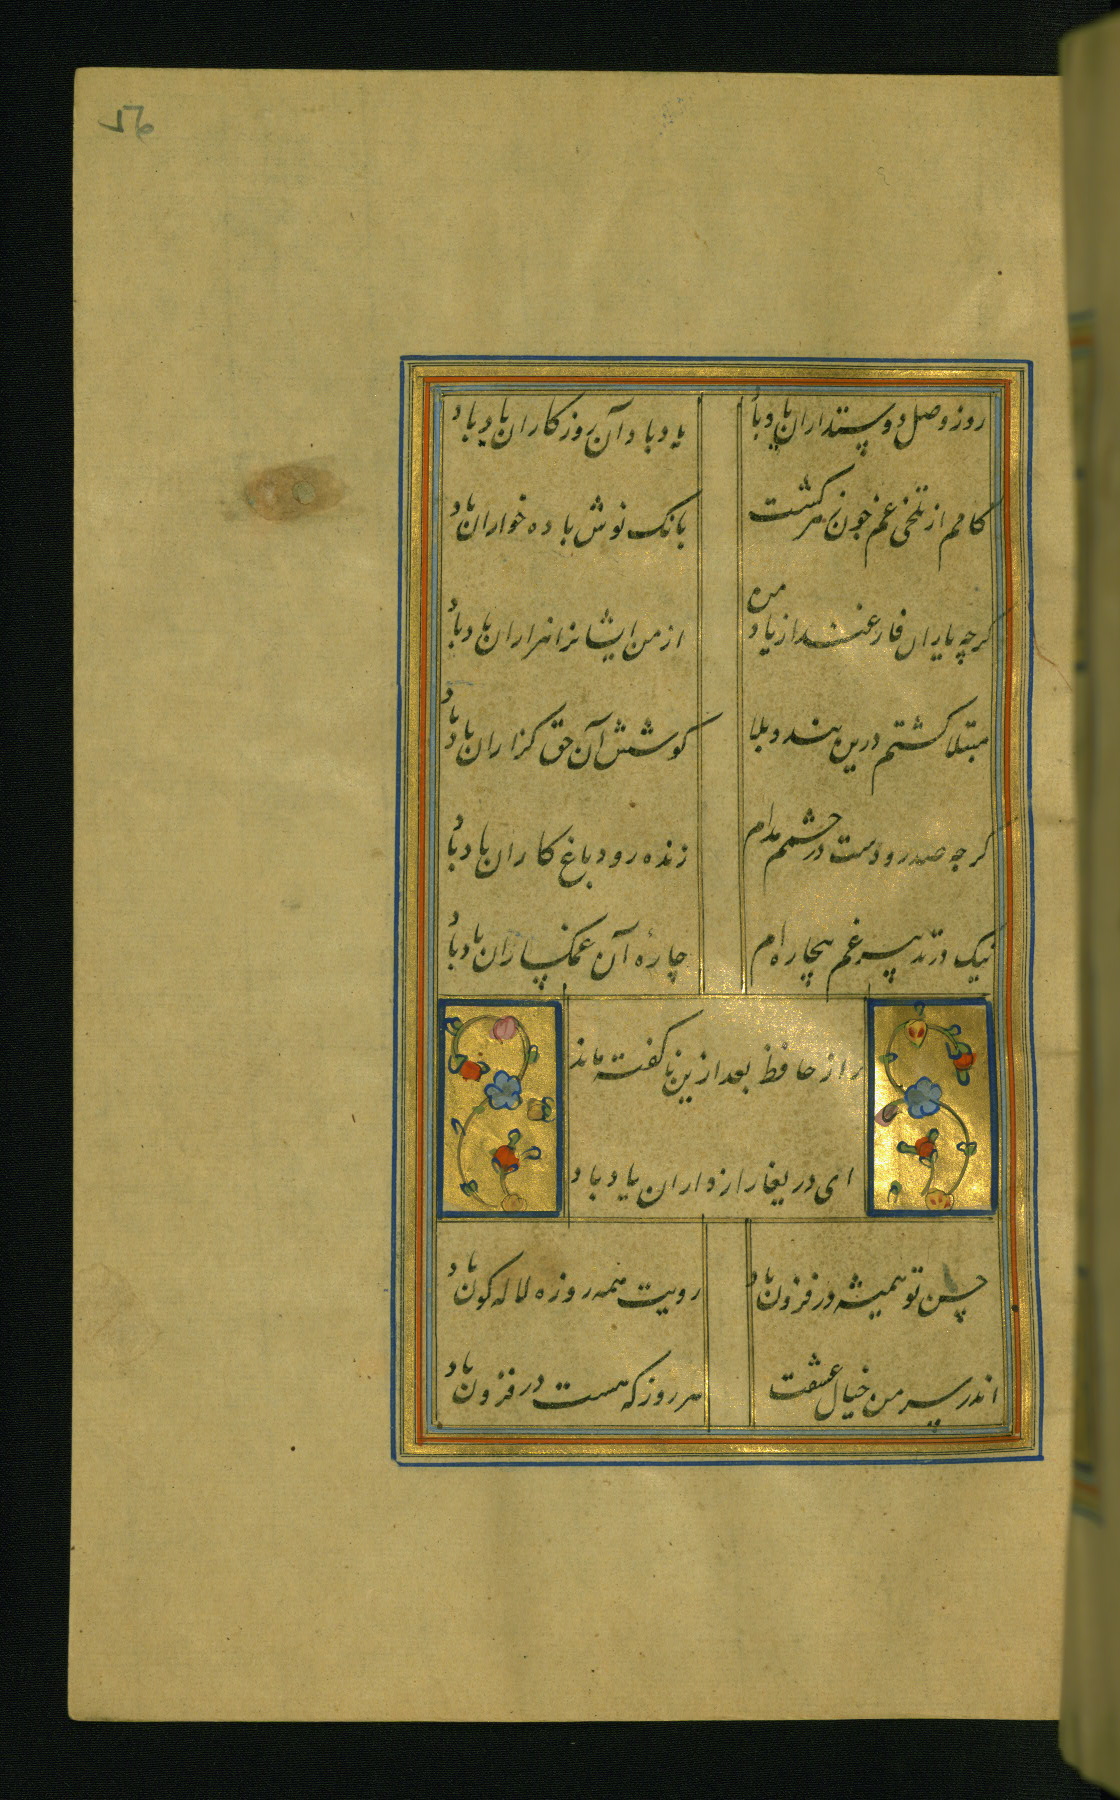 روز وصل دوستداران یاد باد
یاد باد آن روزکاران یاد باد
کامم از تلخی غم چون زهر کشت
بانک نوش باده خواران یاد باد
کرچه یاران فارغند از یاد من
از من ایشانرا هزاران یاد باد
مبتلا کشتم درین بند و بلا
کوشش آن حق کزاران یاد باد
کرچه صد رودست در چشمم مدام
زنده رود باغ کاران یاد باد
نیک در تدبیر غم بیچاره ام
چارهٔ آن غمکساران یاد باد
راز حافظ بعد ازین ناکفته ماند
ای دریغا رازداران یاد باد
حسن تو همیشه در فزون باد
رویت همه روزه لاله کون باد
اندر سر من خیال عشقت
هر روز که هست در فزون باد